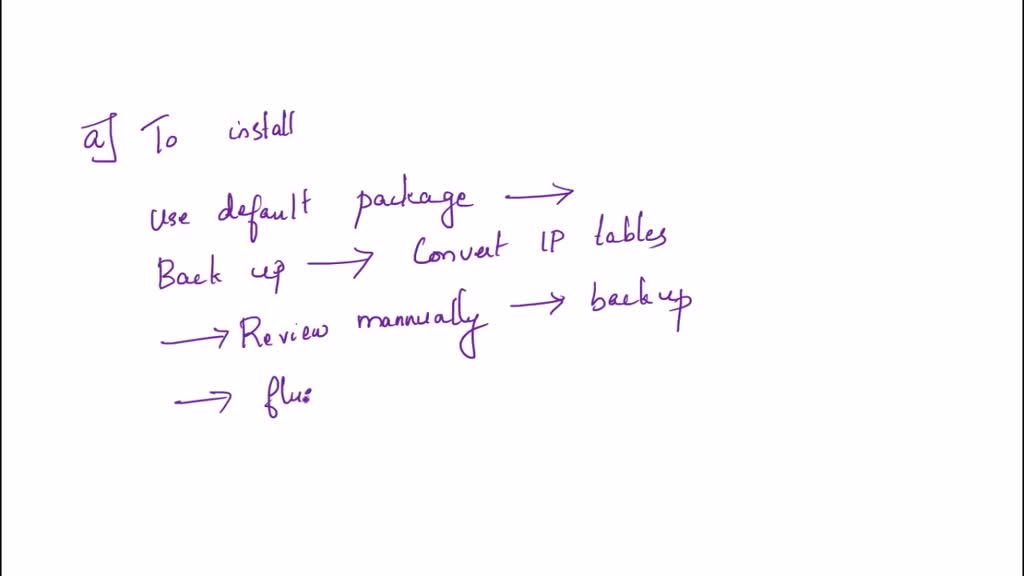 a] To install
Use default package →
Back up → Convert IP tables
→ Review mannually → backup
→ flu